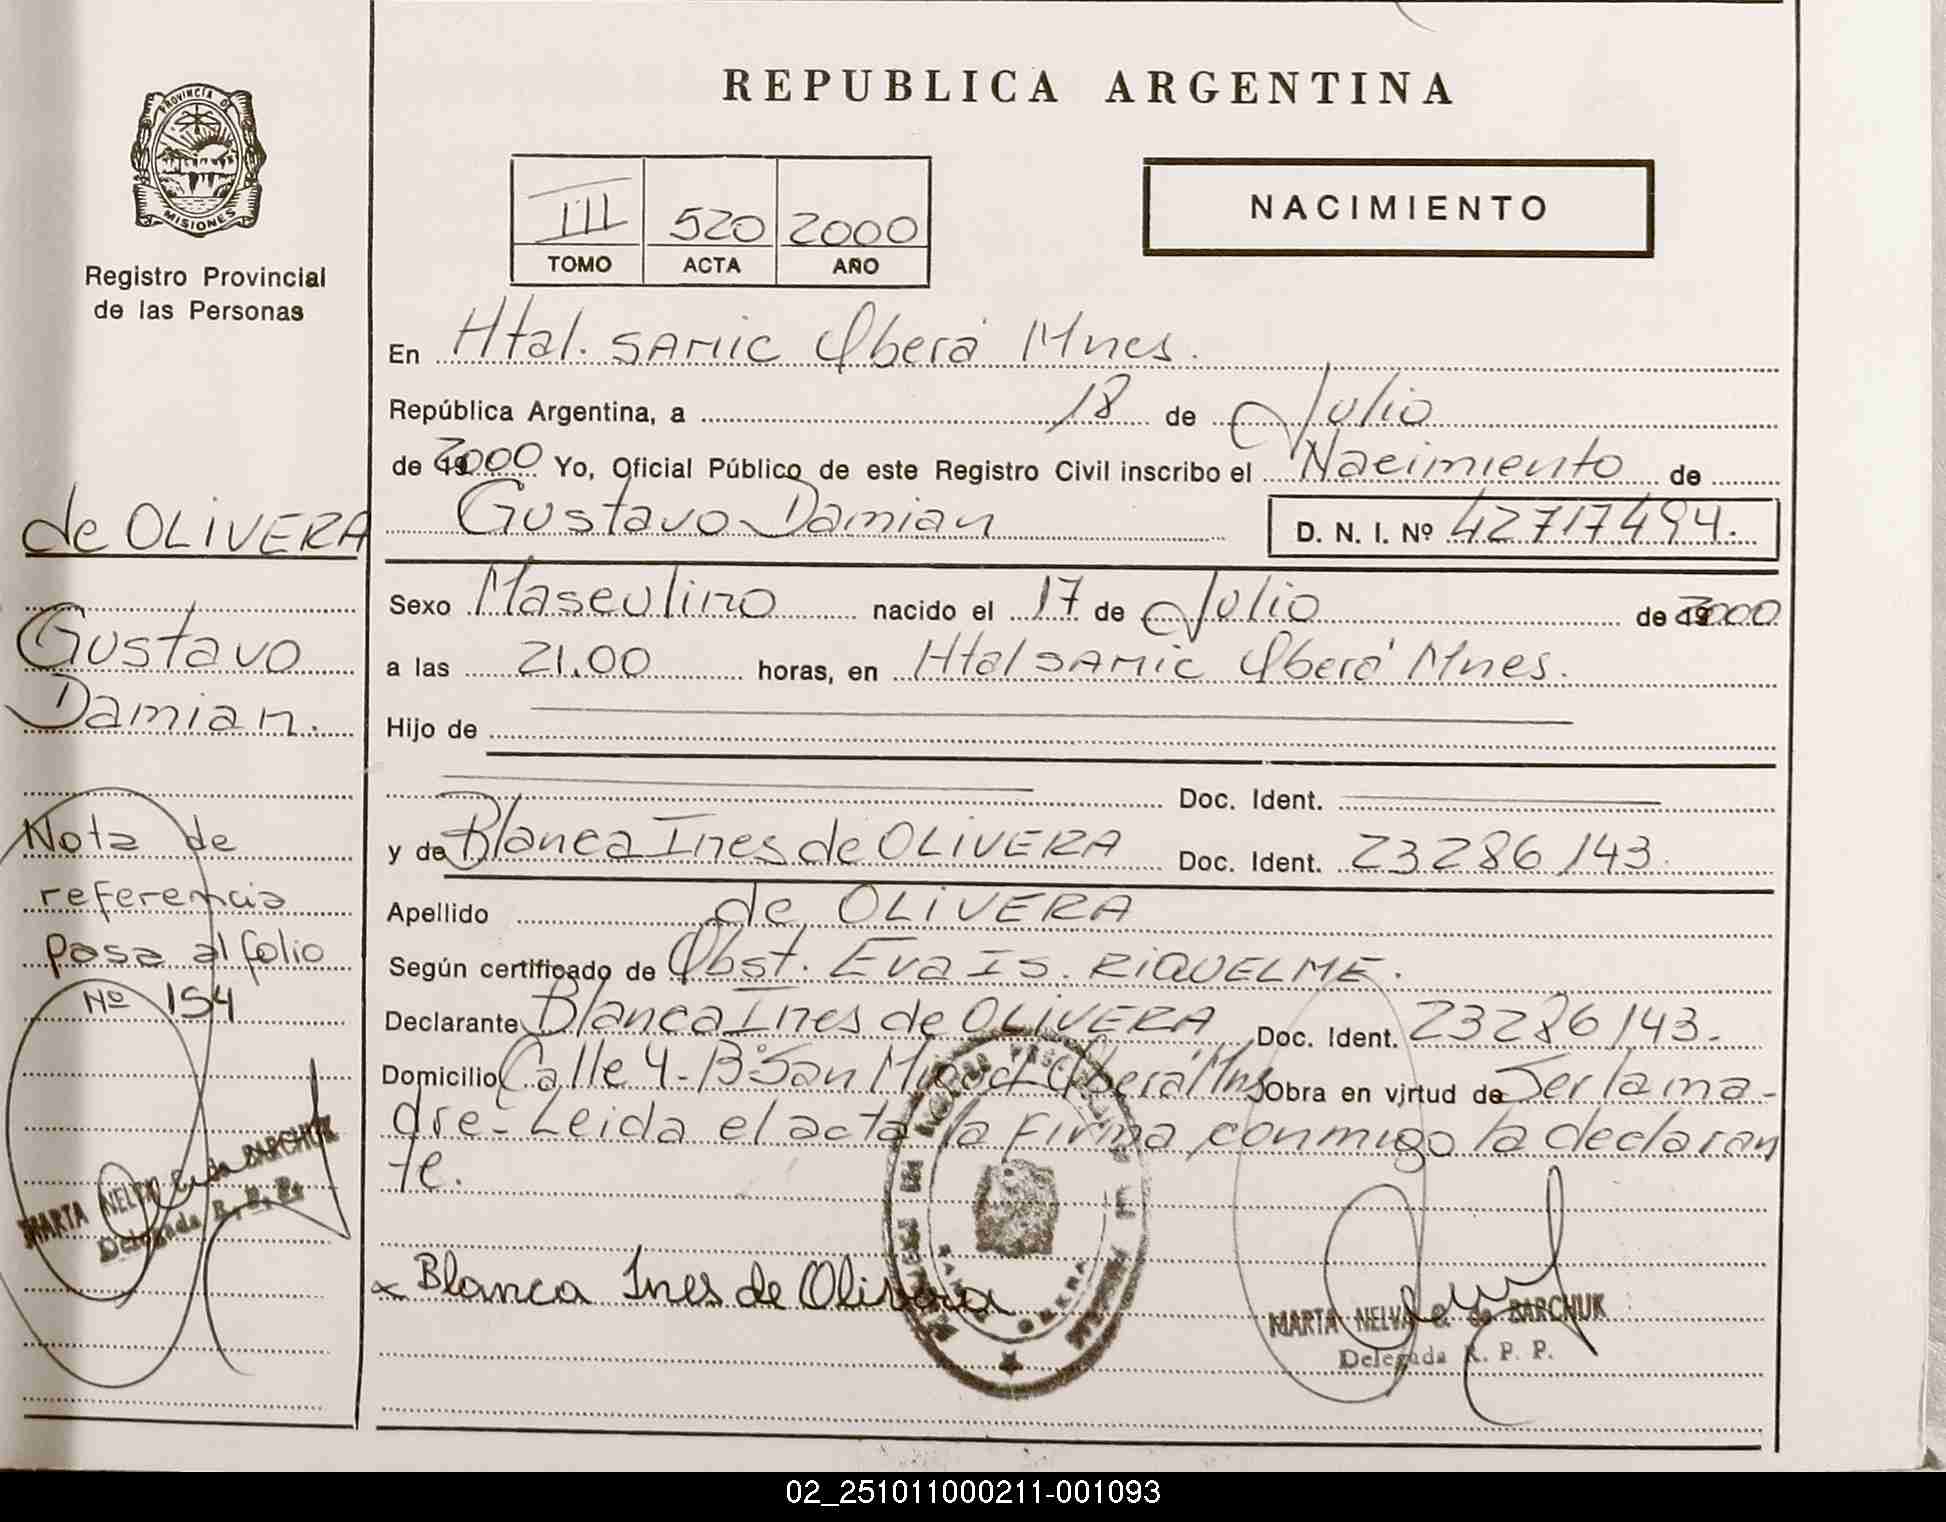 REPUBLICA ARGENTINA
PROVINCIA DE
MISIONES
Registro Provincial
de las Personas
III 520 2000
TOMO ACTA AÑO
NACIMIENTO
En Htal. SAMIC Oberá Mnes.
República Argentina, a 18 de Julio
de 2000 Yo, Oficial Público de este Registro Civil inscribo el Nacimiento de
Gustavo Damian D. N. I. Nº 42717494.
Sexo Masculino nacido el 17 de Julio de 2000
a las 21.00 horas, en Htal SAMIC Oberá Mnes.
Hijo de
Doc. Ident.
y de Blanca Ines de OLIVERA Doc. Ident. 23286143.
Apellido de OLIVERA
Según certificado de Obst. Eva Is. RIQUELME.
Declarante Blanca Ines de OLIVERA Doc. Ident. 23286143.
Domicilio Calle 4-Bº San Miguel Oberá Mns Obra en virtud de Ser la ma-
dre- Leida el acta la firma conmigo la declaran
te.
x Blanca Ines de Olivera
MARTA NELVA G. de BARCHUK
Delegada R. P. P.
de OLIVERA
Gustavo
Damian.
Nota de
referencia
pasa al folio
Nº 154
MARTA NELVA G. de BARCHUK
Delegada R. P. P.
OBERA
02_251011000211-001093